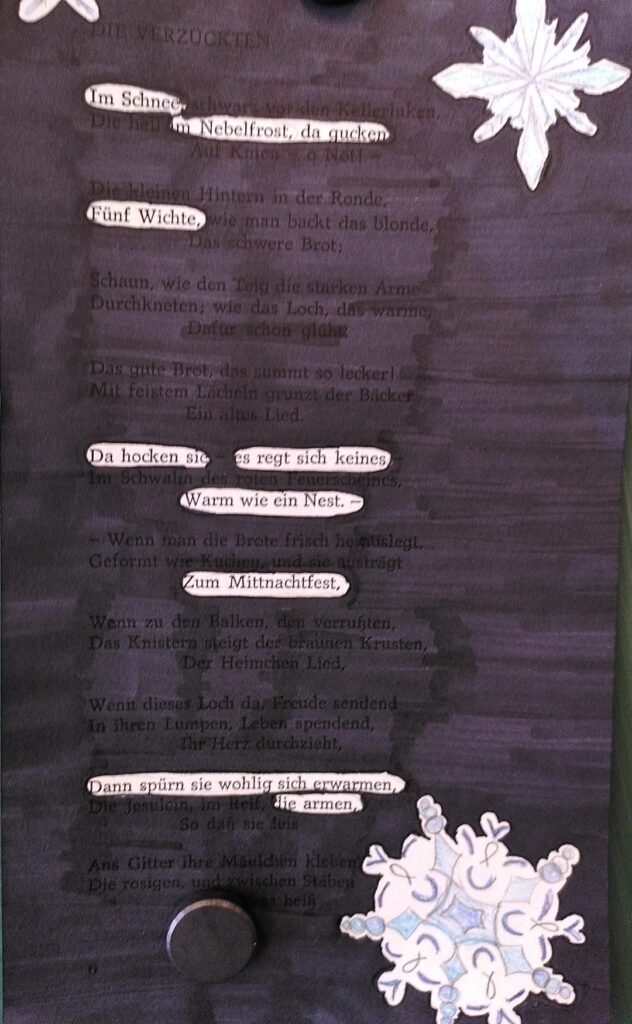 DIE VERZÜCKTEN
Im Schnee, schwarz vor den Kellerluken,
Die hell im Nebelfrost, da gucken
Auf Knien – o Not! –
Die kleinen Hintern in der Ronde,
Fünf Wichte, wie man backt das blonde,
Das schwere Brot;
Schaun, wie den Teig die starken Arme
Durchkneten; wie das Loch, das warme,
Dafür schon glüht.
Das gute Brot, das summt so lecker!
Mit feistem Lächeln grunzt der Bäcker
Ein altes Lied.
Da hocken sie – es regt sich keines
Im Schwalm des roten Feuerscheines,
Warm wie ein Nest. –
– Wenn man die Brote frisch herauslegt,
Geformt wie Kuchen, und sie austrägt
Zum Mittnachtfest,
Wenn zu den Balken, den verrußten,
Das Knistern steigt der braunen Krusten,
Der Heimchen Lied,
Wenn dieses Loch da, Freude sendend
In ihren Lumpen, Leben spendend,
Ihr Herz durchzieht,
Dann spürn sie wohlig sich erwarmen,
Die Jesulein, im Reif, die armen,
So daß sie leis
Ans Gitter ihre Mäulchen kleben
Die rosigen, und zwischen Stäben
heiß
6